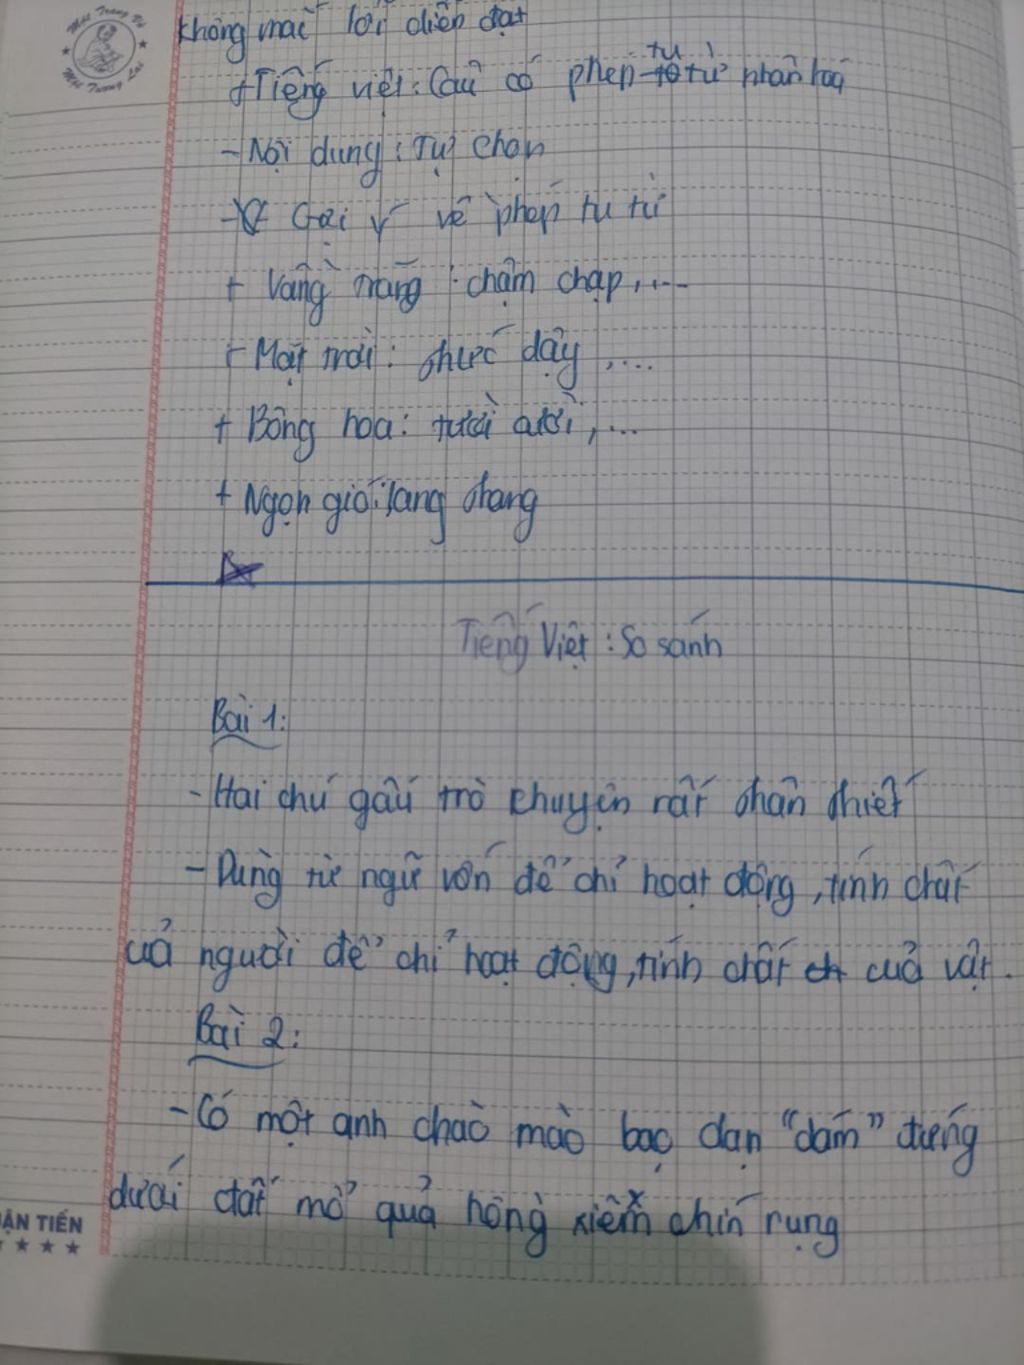 Một Trang Vở
Một Tương Lai
không mắc lỗi diễn đạt
tu
+Tiếng việt: Câu có phép từ nhân hoá
- Nội dung: Tự chọn
- Gợi ý về phép tu từ
+ Vầng trăng : chậm chạp,...
+ Mặt trời: thức dậy,...
+ Bông hoa: tươi cười,...
+ Ngọn gió: lang thang
Tiếng Việt: So sánh
Bài 1:
- Hai chú gấu trò chuyện rất thân thiết
- Dùng từ ngữ vốn để chỉ hoạt động, tính chất
cuả người để chỉ hoạt động, tính chất cuả vật.
Bài 2:
- Có một anh chào mào bạo dạn "dám" đứng
dưới đất mổ quả hồng xiêm chín rụng
ẬN TIẾN